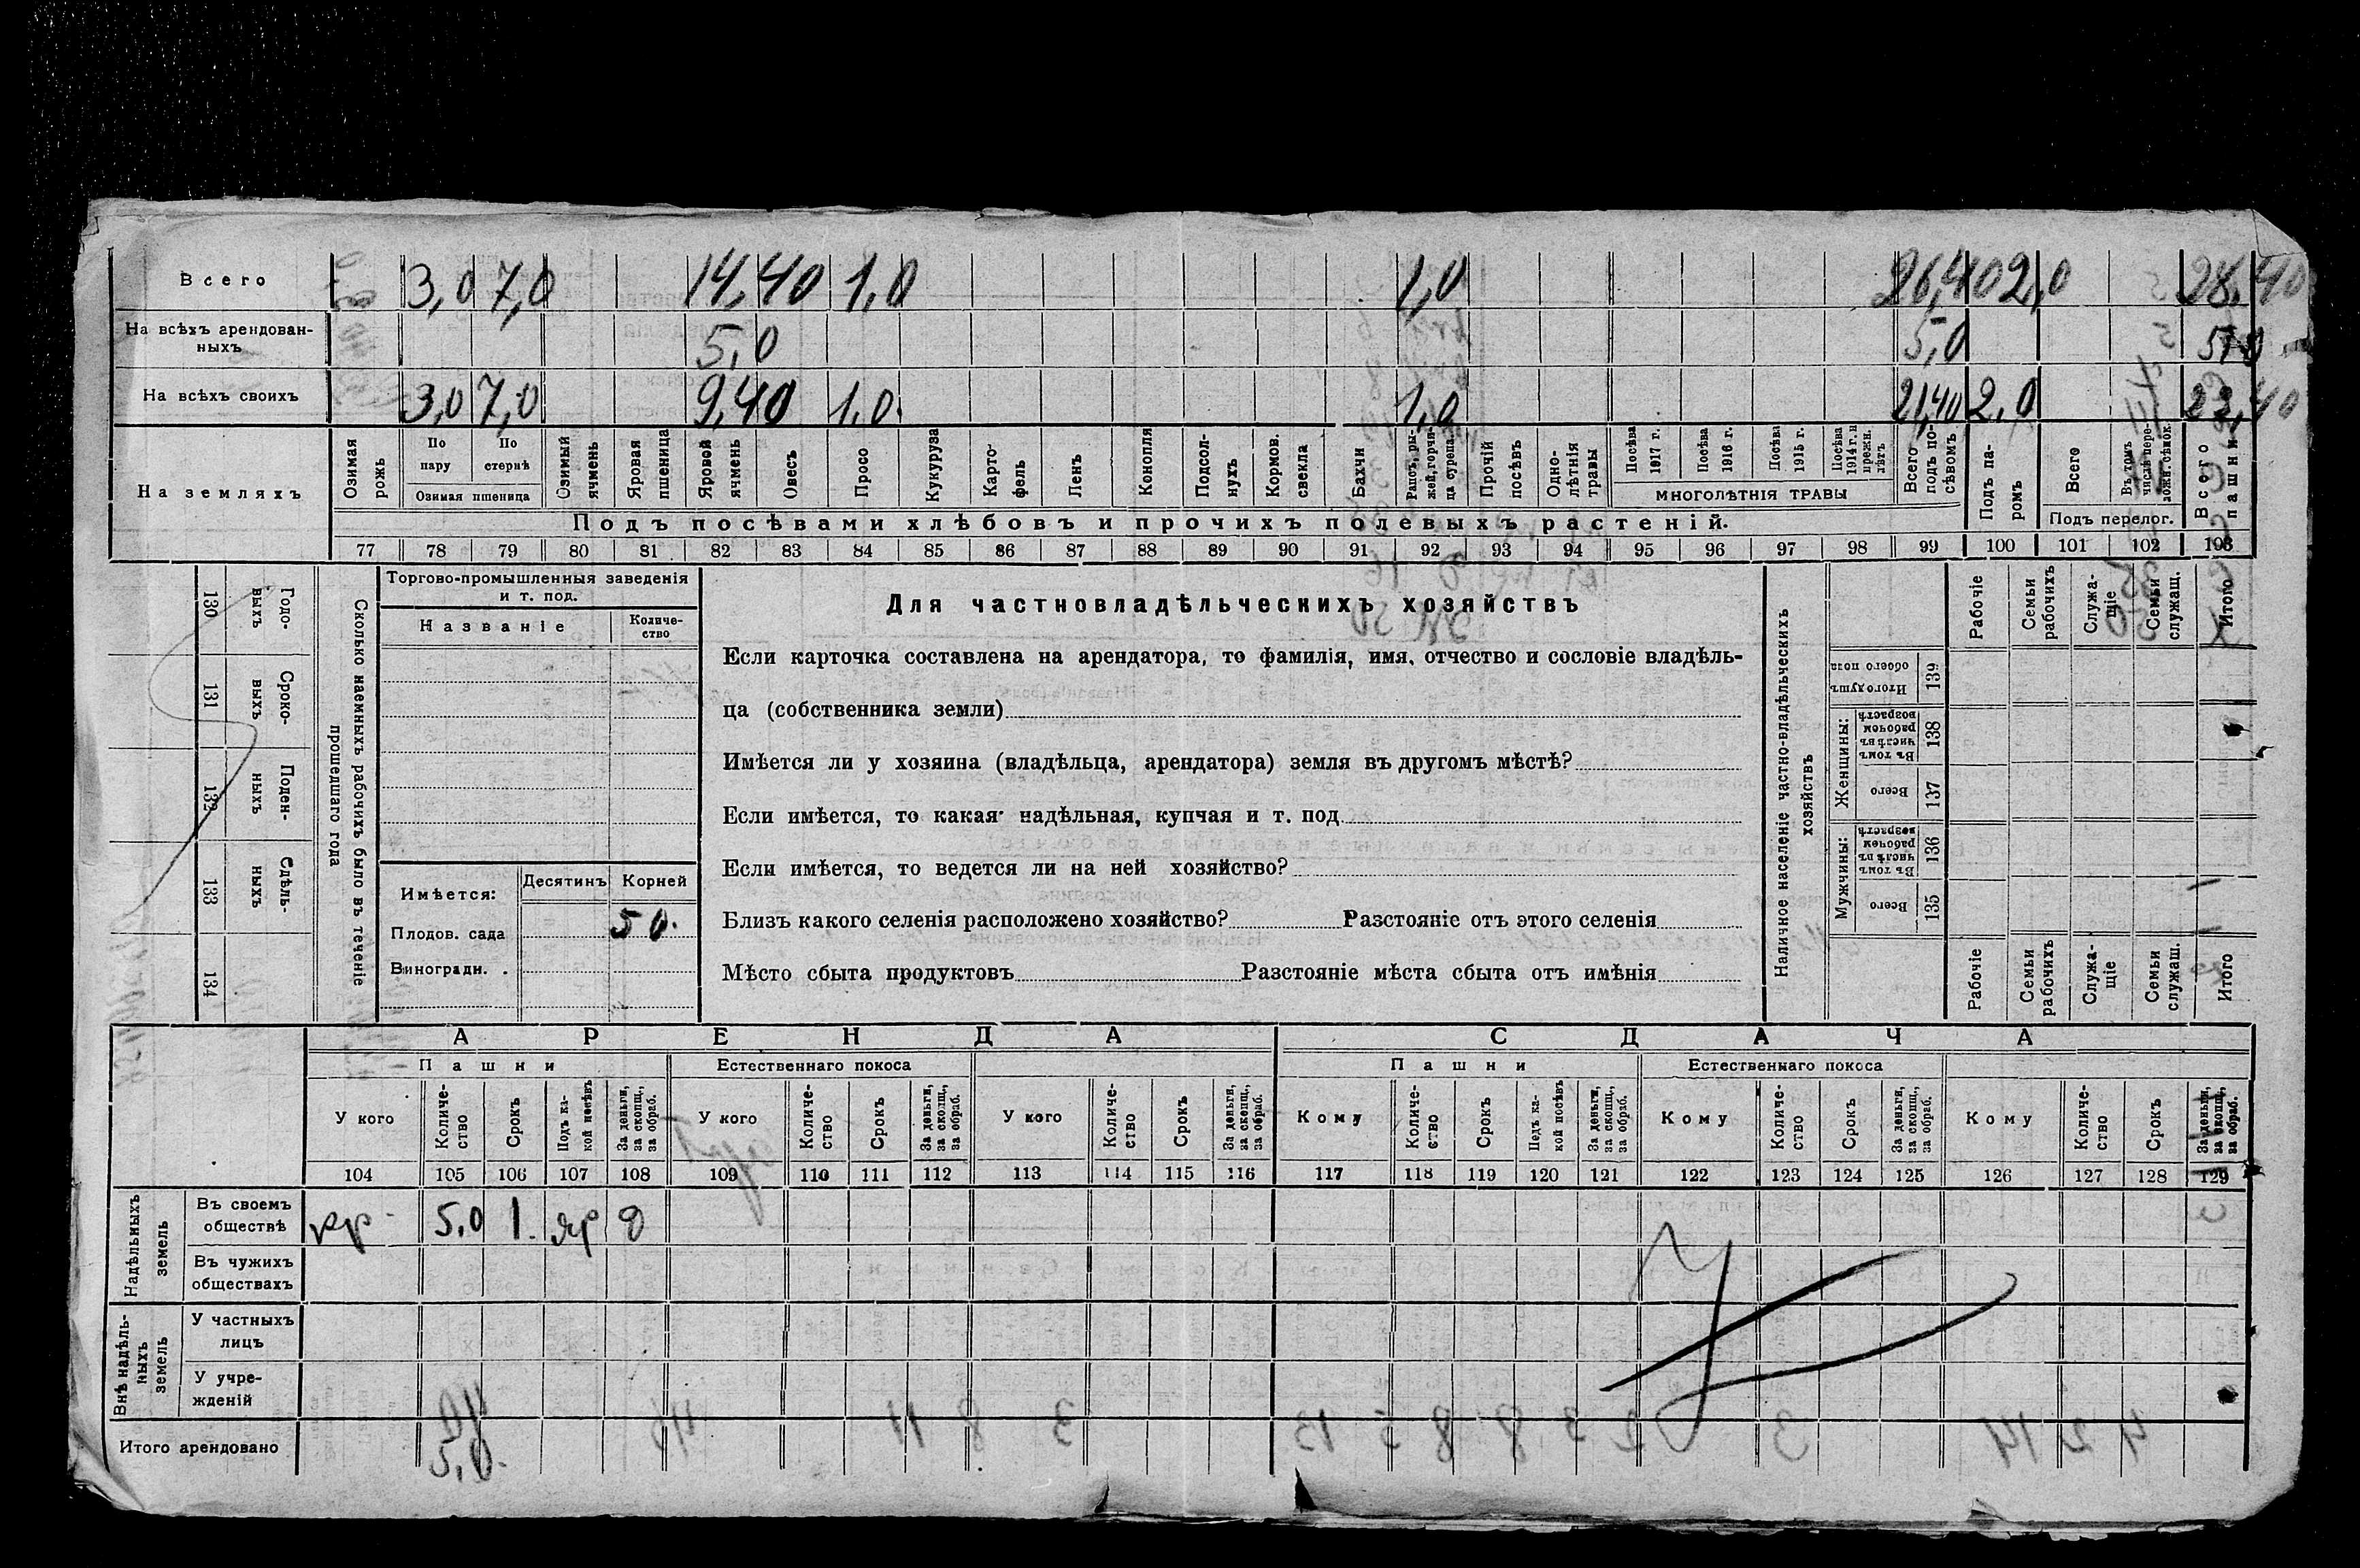 Всего 3,0 7,0 14,40 1,0 1,0 26,40 2,0 28,40
На всѣхъ арендован-
ныхъ 5,0 5,0 5,0
На всѣхъ своихъ 3,0 7,0 9,40 1,0. 1,0 21,40 2,0
На земляхъ
Озимая рожь
По пару
По стернѣ
Озимая пшеница
Озимый ячмень
Яровая пшеница
Яровой ячмень
Овесъ
Просо
Кукуруза
Карто-
фель
Ленъ
Конопля
Подсол-
нухъ
Кормов. свекла
Бахчи
Рапсъ, ры-
жей, горчи-
ца сурепа.
Прочій посѣвъ
Одно-
лѣтнія травы
Посѣва 1917 г.
Посѣва 1916 г.
Посѣва 1915 г.
Посѣва 1914 г. и прежн. лѣтъ
МНОГОЛѢТНІЯ ТРАВЫ
Всего подъ по-
сѣвомъ
Подъ па-
ромъ
Всего
Въ томъ числѣ пере-
ложн. сѣнок.
Подъ перелог.
Всего пашни
Подъ посѣвами хлѣбовъ и прочихъ полевыхъ растеній.
77 78 79 80 81 82 83 84 85 86 87 88 89 90 91 92 93 94 95 96 97 98 99 100 101 102 103
Сколько наемныхъ рабочихъ было въ теченіе
прошедшаго года
Годо-
выхъ
130
Сроко-
выхъ
131
Поден-
ныхъ
132
Сдѣль-
ныхъ
133
134
Торгово-промышленныя заведенія
и т. под.
Названіе
Количе-
ство
Имѣется:
Десятинъ Корней
Плодов. сада 50.
Виноградн. .
Для частновладѣльческихъ хозяйствъ
Если карточка составлена на арендатора, то фамилія, имя, отчество и сословіе владѣль-
ца (собственника земли)
Имѣется ли у хозяина (владѣльца, арендатора) земля въ другомъ мѣстѣ?
Если имѣется, то какая: надѣльная, купчая и т. под.
Если имѣется, то ведется ли на ней хозяйство?
Близъ какого селенія расположено хозяйство? Разстояніе отъ этого селенія
Мѣсто сбыта продуктовъ Разстояніе мѣста сбыта отъ имѣнія
Наличное населеніе частно-владѣльческихъ
хозяйствъ
Рабочіе
Семьи рабочихъ
Служа-
щіе
Семьи служащ.
Итого
Итого душъ обоего пола
139
Женщины:
Въ томъ числѣ въ рабочем возрастѣ
138
Всего
137
Мужчины:
Въ томъ числѣ въ рабочем возрастѣ
136
Всего
135
Рабочіе
Семьи рабочихъ
Служа-
щіе
Семьи служащ.
Итого
АРЕНДА СДАЧА
Пашни Естественнаго покоса Пашни Естественнаго покоса
У кого
Количе-
ство
Срокъ
Подъ ка-
кой посѣвъ
За деньги, за скопщ., за обраб.
У кого
Количе-
ство
Срокъ
За деньги, за скопщ., за обраб.
У кого
Количе-
ство
Срокъ
За деньги, за скопщ., за обраб.
Кому
Количе-
ство
Срокъ
Подъ ка-
кой посѣвъ
За деньги, за скопщ., за обраб.
Кому
Количе-
ство
Срокъ
За деньги, за скопщ., за обраб.
Кому
Количе-
ство
Срокъ
За деньги, за скопщ., за обраб.
104 105 106 107 108 109 110 111 112 113 114 115 116 117 118 119 120 121 122 123 124 125 126 127 128 129
Надѣльныхъ
земель
Въ своемъ
обществѣ 5,0 1. яр д
Въ чужихъ
обществахъ
Внѣ надѣль-
ныхъ
земель
У частныхъ
лицъ
У учре-
жденій
Итого арендовано 5,0.